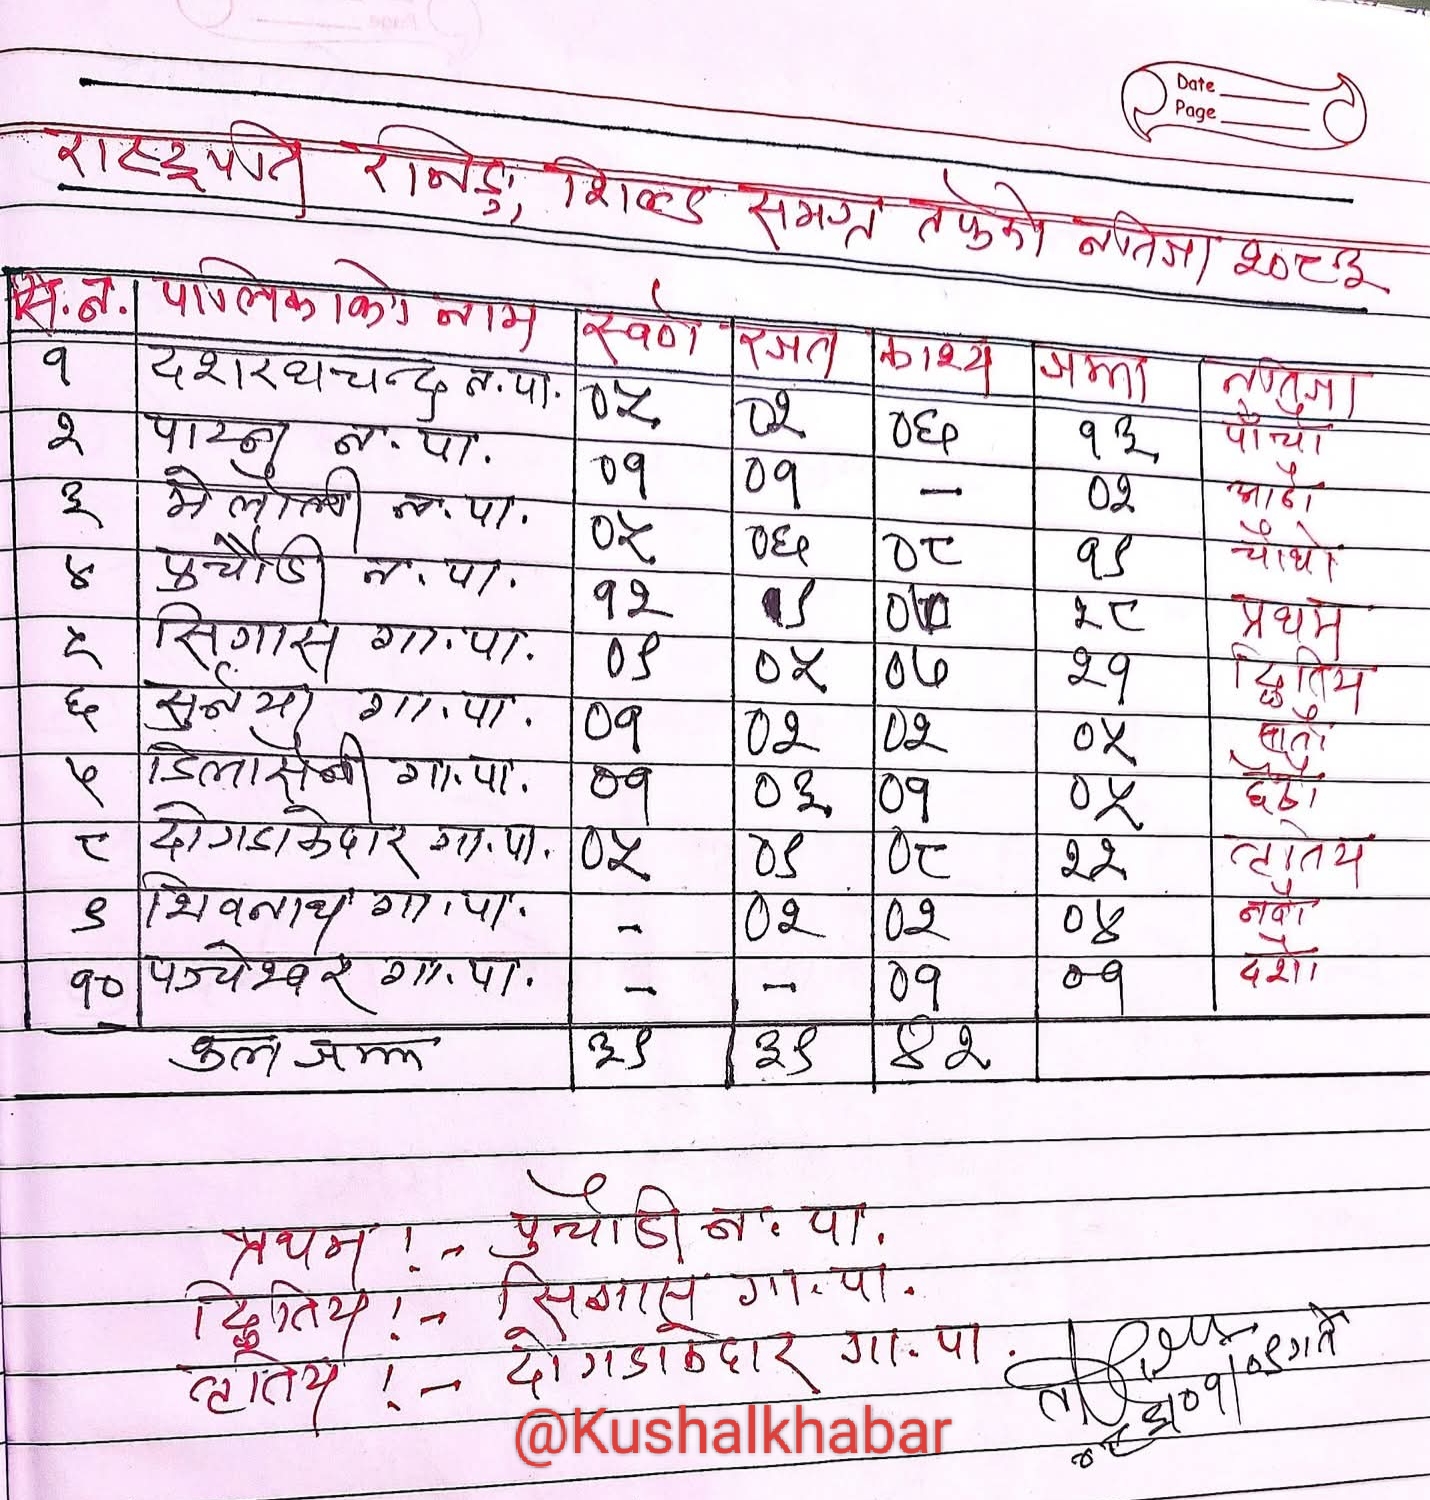 Date
Page
रास्ट्रपति रनिङ शिल्ड समग्र तर्फको नतिजा २०८३
सि.न. पालिकाको नाम स्वर्ण रजत काश्य जम्मा नतिजा
१ दशरथचन्द्र न.पा. ०५ ०२ ०६ १३ पाँचौ
२ पाटन न.पा. ०१ ०१ – ०२ आठौ
३ मेलौली न.पा. ०५ ०६ ०८ १९ चौथो
४ पुर्चौडी न.पा. १२ ९ ०७ २८ प्रथम
५ सिगास गा.पा. ०९ ०५ ०७ २१ द्धितिय
६ सुर्नया गा.पा. ०१ ०२ ०२ ०५ सातौ
७ डिलासैनी गा.पा. ०१ ०३ ०१ ०५ छैठौ
८ दोगडाकेदार गा.पा. ०५ ०९ ०८ २२ तृतिय
९ शिवनाथ गा.पा. - ०२ ०२ ०४ नवौ
१० पञ्चेश्वर गा.पा. – – ०१ ०१ दशौ
कुल जम्मा ३९ ३९ ४२
प्रथम :- पुर्चौडी न.पा.
द्धितिय :- सिगास गा.पा.
तृतिय :- दोगडाकेदार गा.पा.
@Kushalkhabar